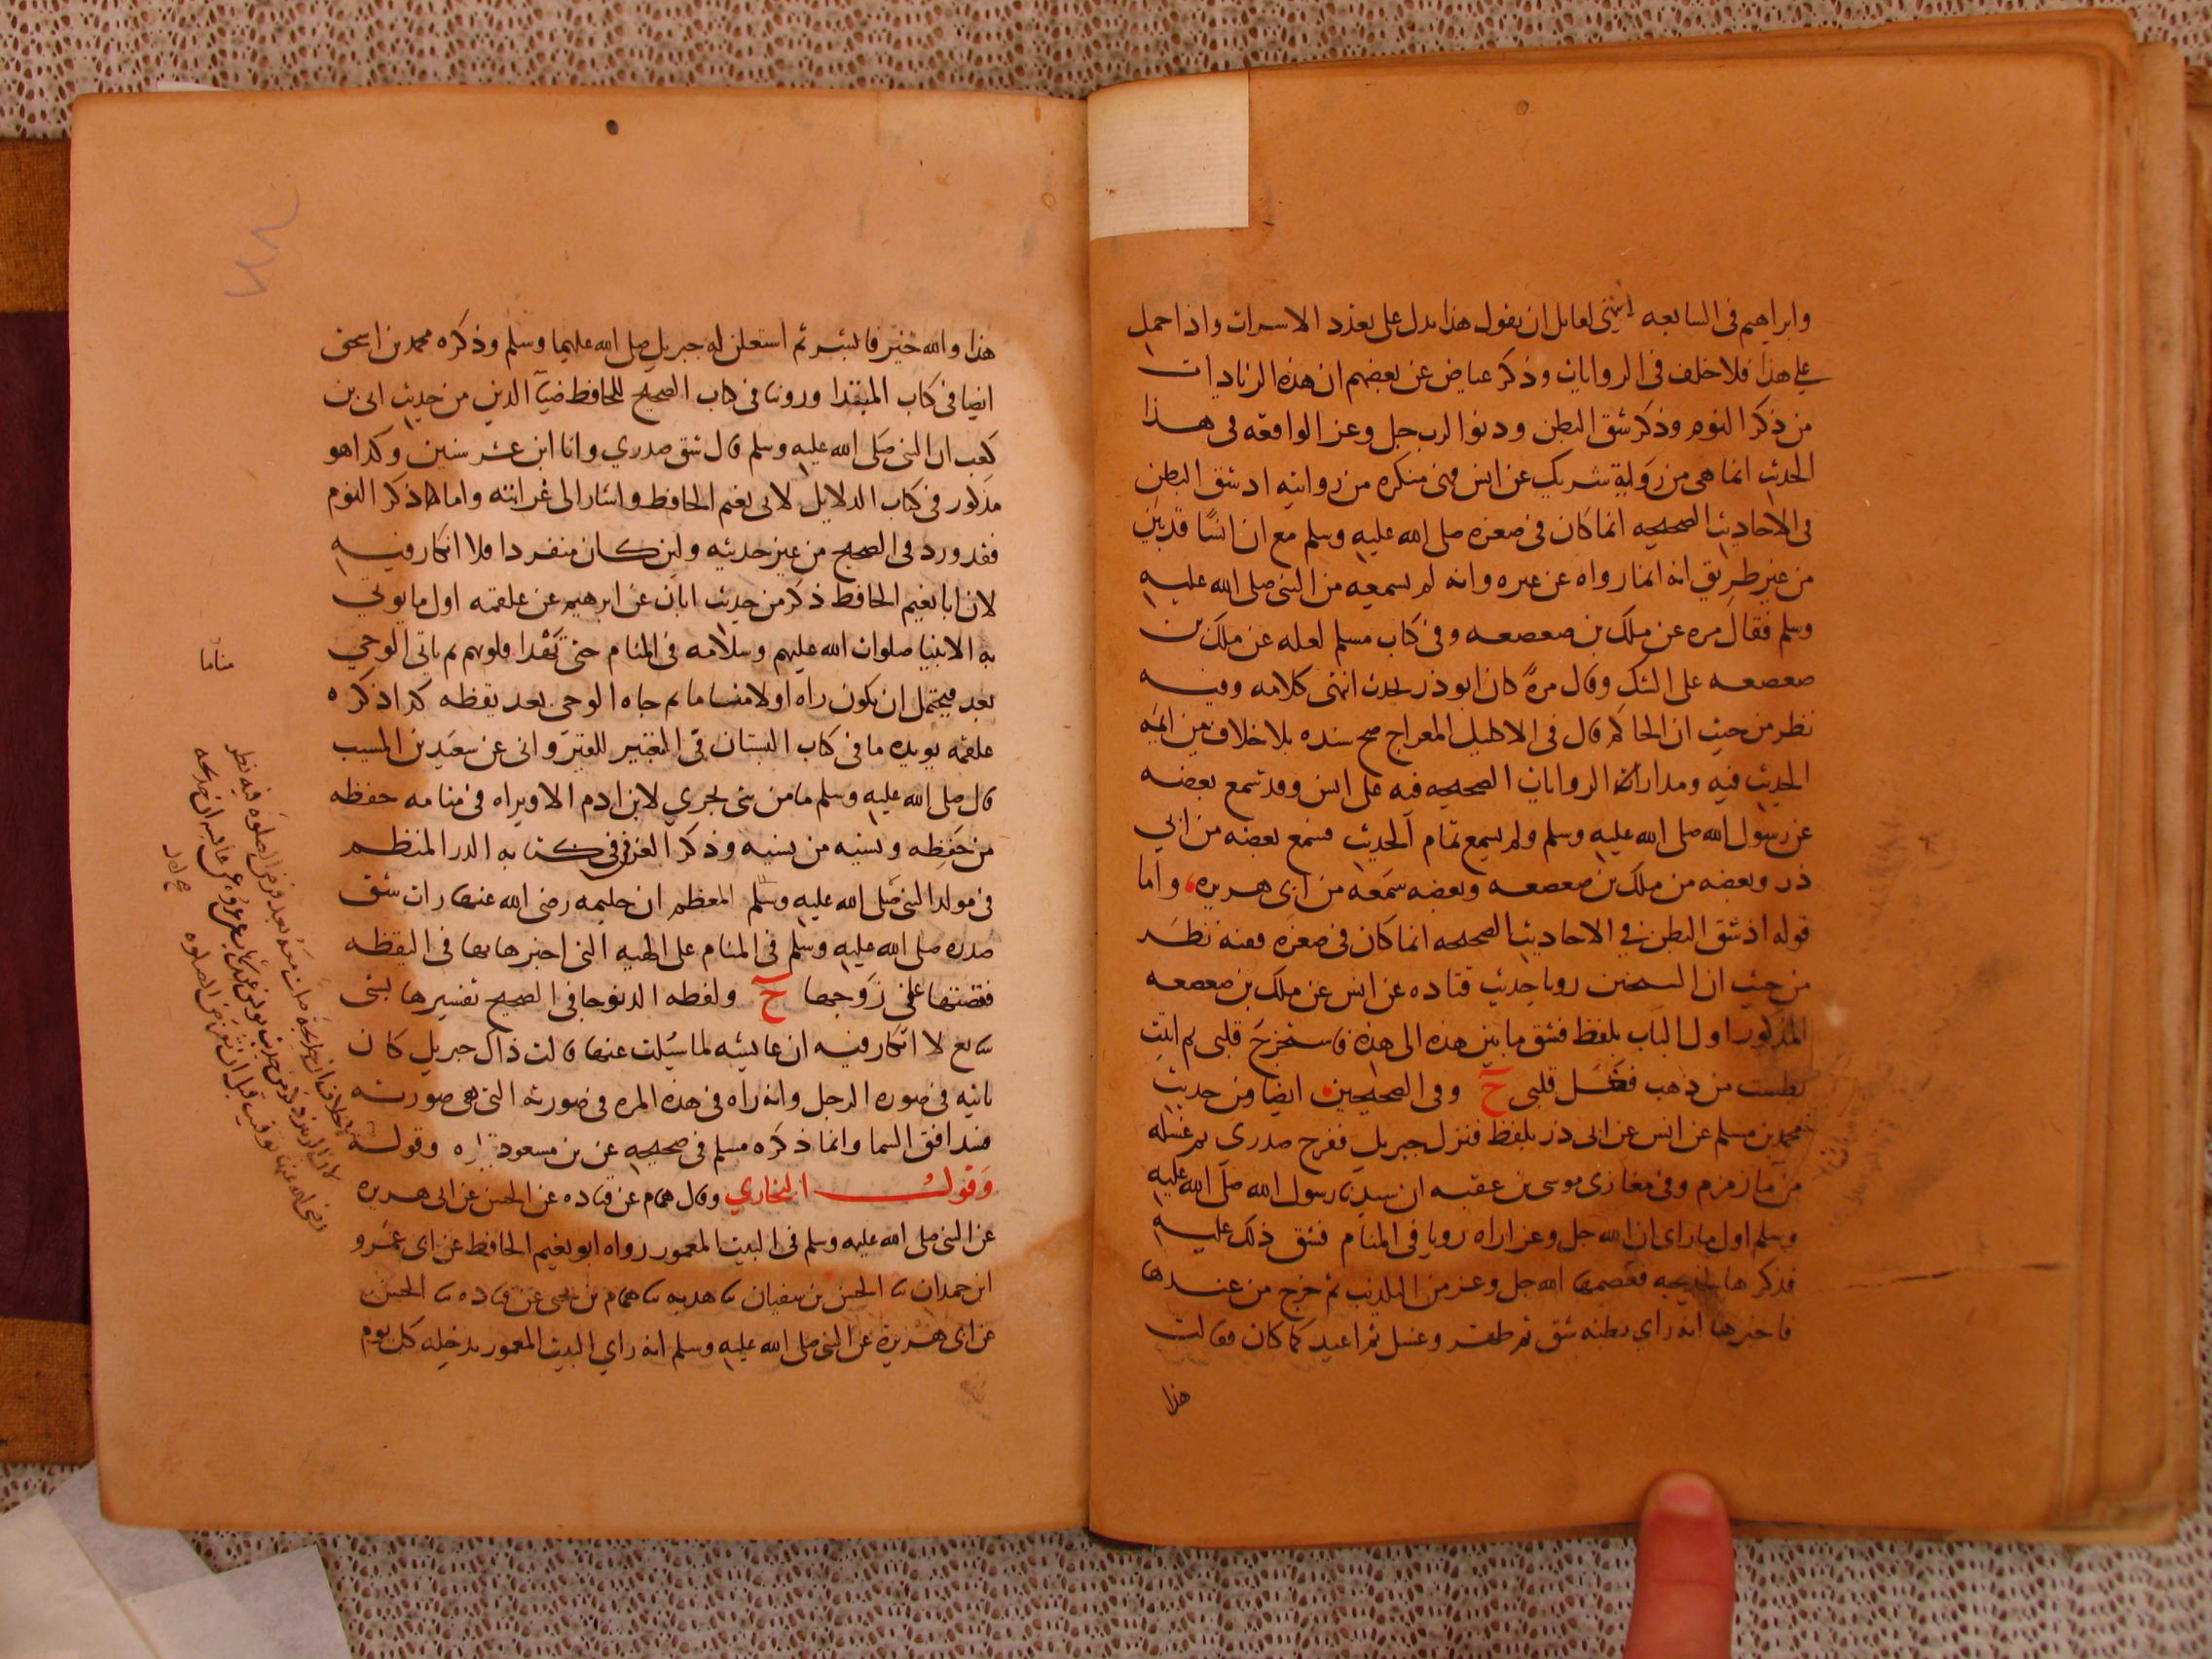 وابراهيم في السابعه انتهى لقايل ان يقول هذا يدل على تعدد الاسراات واذا حمل
على هذا فلا خلف في الروايات وذكر عياض عن بعضهم ان هذه الزيادات
من ذكر النوم وذكر شق البطن ودنو الرب جل وعز الواقعه في هذا
الحديث انما هي من رواية شريك عن انس وهي منكره من روايته اذ شق البطن
في الاحاديث الصحيحه انما كان في صغره صلى الله عليه وسلم مع ان انسًا قد بين
من غير طريق انه انما رواه عن غيره وانه لم يسمعه من النبي صلى الله عليه
وسلم فقال مره عن ملك بن صعصعه وفي كتاب مسلم لعله عن ملك بن
صعصعه على الشك وقال مرةً كان ابو ذر يحدث انتهى كلامه وفيه
نظر من حيث ان الحاكم قال في الاكليل المعراج صح سنده بلا خلاف بين ايمة
الحديث فيه ومدار الروايات الصحيحه فيه على انس وقد سمع بعضه
عن رسول الله صلى الله عليه وسلم ولم يسمع تمام الحديث فسمع بعضه من ابي
ذر وبعضه من ملك بن صعصعه وبعضه سمعه من ابي هريره واما
قوله اذ شق البطن في الاحاديث الصحيحه انما كان في صغره ففيه نظر
من حيث ان الشيخين رويا حديث قتاده عن انس عن ملك بن صعصعه
المذكور اول الباب بلفظ فشق ما بين هذه الى هذه فاستخرج قلبي ثم اتيت
بطست من ذهب فغسل قلبي ح وفي الصحيحين ايضا من حديث
محمد بن مسلم عن انس عن ابي ذر بلفظ فنزل جبريل ففرج صدري ثم غسله
من ما زمزم وفي مغازي موسى بن عقبه ان سيدنا رسول الله صلى الله عليه
وسلم اول ما راى ان الله جل وعز اراه رويا في المنام فشق ذلك عليه
فذكرها لخديجه فعصمها الله جل وعز من التكذيب ثم خرج من عندها
فاخبرها انه راي بطنه شق ثم طهر وغسل ثم اعيد كما كان فقالت
هذا
هذا والله خير فابشر ثم استعلن له جبريل صلى الله عليهما وسلم وذكره محمد بن اسحق
ايضا في كتاب المبتدا وروينا في كتاب الصحيح للحافظ ضيا الدين من حديث ابي بن
كعب ان النبي صلى الله عليه وسلم قال شق صدري وانا ابن عشر سنين وكذا هو
مذكور في كتاب الدلايل لابي نعيم الحافظ واشار الى غرابته واما ذكر النوم
فقد ورد في الصحيح من غير حديثه ولين كان منفردا فلا انكار فيه
لان ابا نعيم الحافظ ذكر من حديث ابان عن ابرهيم عن علقمه اول ما يوتي
به الانبيا صلوات الله عليهم وسلامه في المنام حتى تهدا قلوبهم ثم ياتي الوحي
بعد فيحتمل ان يكون راه اولا مناما ثم جاه الوحي بعد يقظه كذا ذكره
علقمه يويده ما في كتاب البستان في التعبير للقيرواني عن سعيد بن المسيب
قال صلى الله عليه وسلم ما من شي يجري لابن ادم الا ويراه في منامه حفظه
من حفظه ونسيه من نسيه وذكر العزفي في كتابه الدر المنظم
في مولد النبي صلى الله عليه وسلم المعظم ان حليمه رضي الله عنها رات شق
صدره صلى الله عليه وسلم في المنام على الهيه التي اخبرها بها في اليقظه
فقصتها على زوجها ح ولفظه الدنو جا في الصحيح تفسيرها بشي
سايع لا انكار فيه ان عايشه لما سيلت عنها قالت ذاك جبريل كان
ياتيه في صوره الرجل وانه راه في هذه المره في صورته التي هي صورته
فسد افق السما وانما ذكره مسلم في صحيحه عن بن مسعود وقوله
وقول البخاري وقال همام عن قتاده عن الحسن عن ابي هريره
عن النبي صلى الله عليه وسلم في البيت المعمور رواه ابو نعيم الحافظ عن ابي عمرو
ابن حمدان نا الحسن بن سفيان نا هدبه نا همام بن يحيى عن قتاده نا الحسن
عن ابي هريرة عن النبي صلى الله عليه وسلم انه راي البيت المعمور يدخله كل يوم
مناما